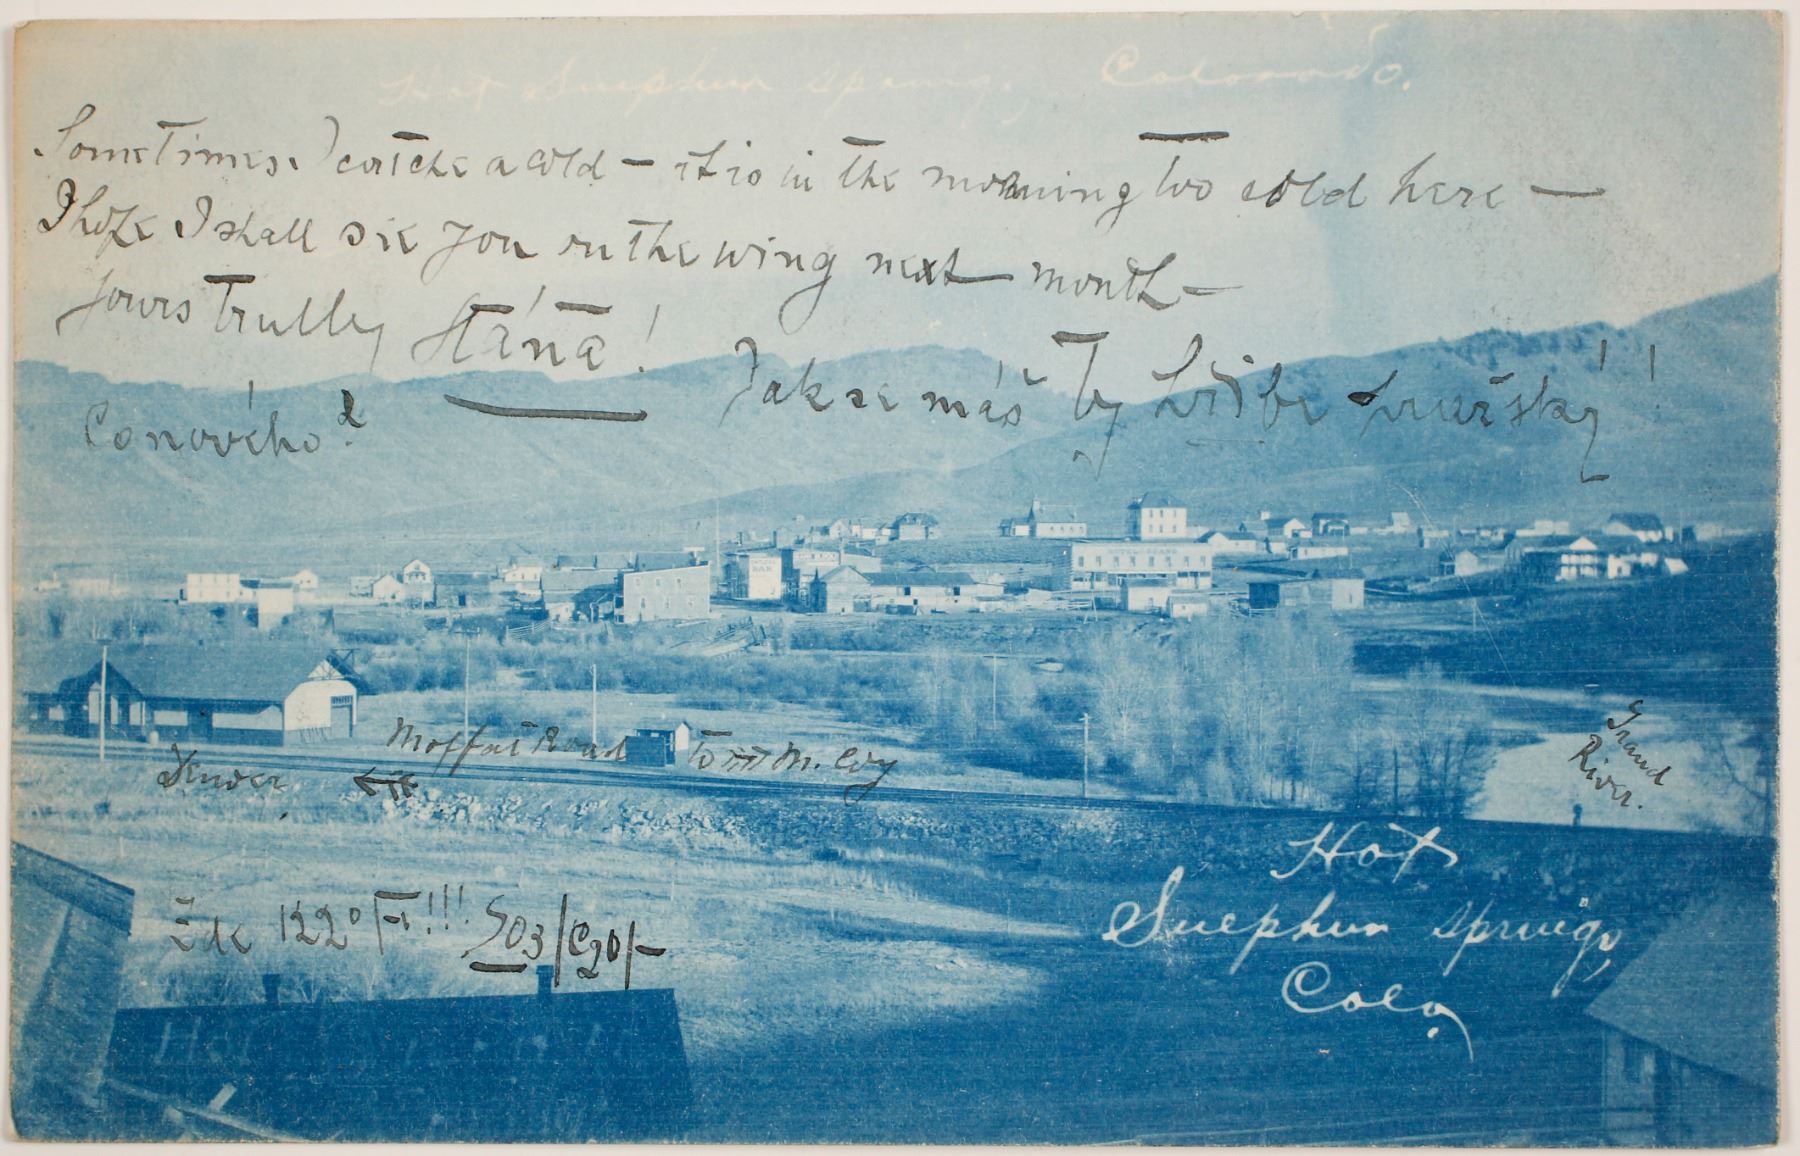 Hot Suephur springs, Colorado.
Sometimes. I catche a cold — it is in the morning too cold here —
I hope I shall see you on the wing next month —
Yours trulley Hána!
Jak se máš Ty
Co nového?
Moffat Road to M. Coy
Denver
Grand
River.
Zde 122° F!!! 503/C20/-
Hot
Suephur springs,
Colo,
Hot